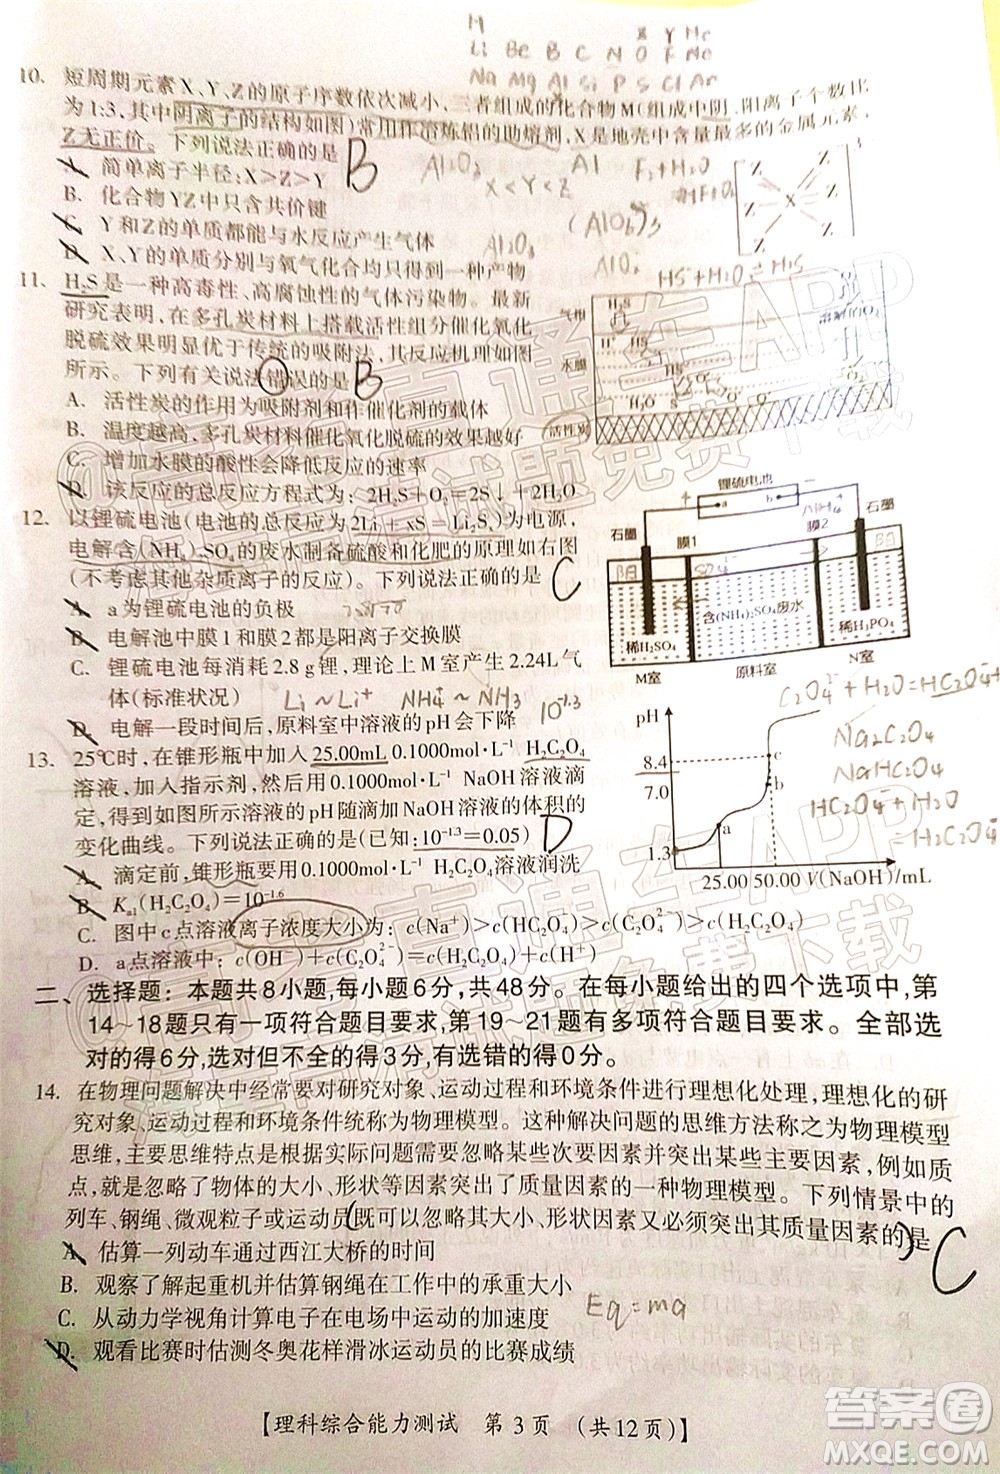 H
X Y He
Li Be B C N O F Ne
Na Mg Al Si P S Cl Ar
10. 短周期元素X、Y、Z的原子序数依次减小,三者组成的化合物M(组成中阴、阳离子个数比
为1:3,其中阴离子的结构如图)常用作冶炼铝的助熔剂,X是地壳中含量最多的金属元素,
Z无正价。下列说法正确的是 B
A. 简单离子半径:X>Z>Y
B. 化合物YZ中只含共价键
C. Y和Z的单质都能与水反应产生气体
D. X、Y的单质分别与氧气化合均只有一种产物
Al₂O₃ Al F₂+H₂O
X<Y<Z
Al₂O₃
Z Z
Z X Z
Z Z
11. H₂S是一种高毒性、高腐蚀性的气体污染物。最新
研究表明,在多孔炭材料上搭载活性组分催化氧化
脱硫效果明显优于传统的吸附法,其反应机理如图
所示。下列有关说法错误的是 B
A. 活性炭的作用为吸附剂和作催化剂的载体
B. 温度越高,多孔炭材料催化氧化脱硫的效果越好
C. 增加水膜的酸性会降低反应的速率
D. 该反应的总反应方程式为:2H₂S+O₂=2S+2H₂O
HS⁻+H₂O⇌H₂S
气相 H₂S
水膜
H₂O S O₂
活性炭
12. 以锂硫电池(电池的总反应为2Li+xS=Li₂Sₓ)为电源,
电解含(NH₄)₂SO₄的废水制备硫酸和化肥的原理如右图
(不考虑其他杂质离子的反应)。下列说法正确的是 C
A. a为锂硫电池的负极
B. 电解池中膜1和膜2都是阳离子交换膜
C. 锂硫电池每消耗2.8g锂,理论上M室产生2.24L气
体(标准状况)
Li~Li⁺ NH₄⁺~NH₃
D. 电解一段时间后,原料室中溶液的pH会下降
锂硫电池
a b
石墨 膜1 膜2 石墨
阳 阴
稀H₂SO₄ 含(NH₄)₂SO₄废水 稀H₃PO₄
M室 原料室 N室
13. 25℃时,在锥形瓶中加入25.00mL 0.1000mol·L⁻¹ H₂C₂O₄
溶液,加入指示剂,然后用0.1000mol·L⁻¹ NaOH溶液滴
定,得到如图所示溶液的pH随滴加NaOH溶液的体积的
变化曲线。下列说法正确的是(已知:10⁻¹·³=0.05) D
A. 滴定前,锥形瓶要用0.1000mol·L⁻¹ H₂C₂O₄溶液润洗
B. Kₐ₁(H₂C₂O₄)=10⁻¹·⁶
C. 图中c点溶液离子浓度大小为:c(Na⁺)>c(HC₂O₄⁻)>c(C₂O₄²⁻)>c(H₂C₂O₄)
D. a点溶液中:c(OH⁻)+c(C₂O₄²⁻)=c(H₂C₂O₄)+c(H⁺)
10⁻¹·³
C₂O₄²⁻+H₂O=HC₂O₄⁻
Na₂C₂O₄
NaHC₂O₄
HC₂O₄⁻+H₂O
=H₂C₂O₄
pH
8.4
7.0
1.3
a b c
25.00 50.00 V(NaOH)/mL
二、选择题:本题共8小题,每小题6分,共48分。在每小题给出的四个选项中,第
14~18题只有一项符合题目要求,第19~21题有多项符合题目要求。全部选
对的得6分,选对但不全的得3分,有选错的得0分。
14. 在物理问题解决中经常要对研究对象、运动过程和环境条件进行理想化处理,理想化的研
究对象、运动过程和环境条件统称为物理模型。这种解决问题的思维方法称之为物理模型
思维,其主要思维特点是根据实际问题需要忽略某些次要因素并突出某些主要因素,如质
点,就是忽略了物体的大小、形状等因素突出了质量因素的一种物理模型。下列情景中的
列车、钢绳、微观粒子或运动员既可以忽略其大小、形状因素又必须突出其质量因素的是 C
A. 估算一列动车通过西江大桥的时间
B. 观察了解起重机并估算钢绳在工作中的承重大小
C. 从动力学视角计算电子在电场中运动的加速度
D. 观看比赛时估测冬奥花样滑冰运动员的比赛成绩
Eq=ma
【理科综合能力测试 第3页 (共12页)】
答案圈
MXQE.COM